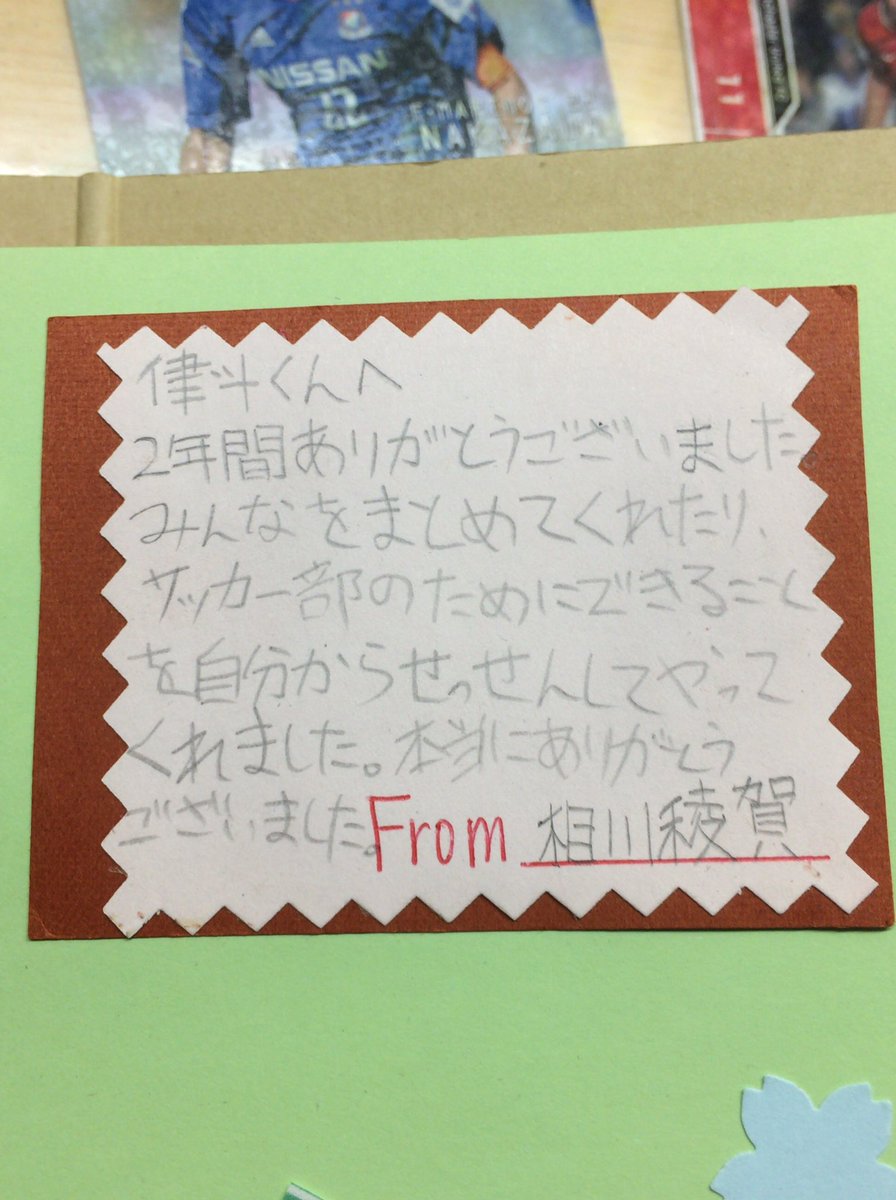 NISSAN
22
NAKAZAWA
11
律斗くんへ
2年間ありがとうございました。
みんなをまとめてくれたり、
サッカー部のためにできること
を自分からせっせんしてやって
くれました。本当にありがとう
ございました。From 相川稜賀